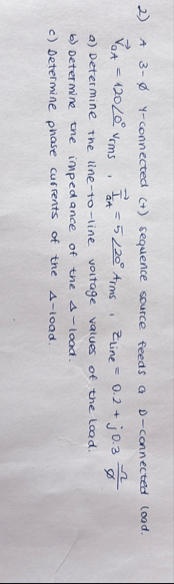 2) A 3-ϕ Y-connected (+) sequence source feeds a D-connected load.
V⃗aA = 120∠0° Vrms , I⃗aA = 5∠20° Arms , Zline = 0.2 + j0.3 Ω/ϕ
a) Determine the line-to-line voltage values of the load.
b) Determine the impedance of the Δ-load.
c) Determine phase currents of the Δ-load.